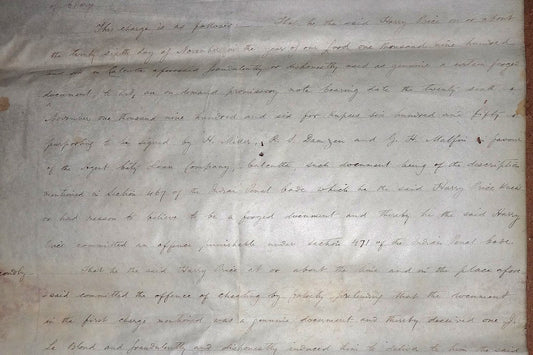 of Glory
This charge is as follows:— That he the said Harry Price on or about
the twenty sixth day of November in the year of our Lord one thousand nine hundred
and six in Calcutta aforesaid fraudulently or dishonestly used as genuine a certain forged
document, to wit, an on demand promissory note bearing date the twenty sixth
November one thousand nine hundred and six for Rupees six hundred and fifty
purporting to be signed by H. Miller, R. S. Damzen and G. H. Malfin favour
of the Agent City Loan Company, Calcutta, such document being of the description
mentioned in Section 467 of the Indian Penal Code which he the said Harry Price knew
or had reason to believe to be a forged document and thereby he the said Harry
Price committed an offence punishable under section 471 of the Indian Penal Code.
condly— That he the said Harry Price at or about the time and in the place afore
said committed the offence of cheating by falsely pretending that the document
in the first charge mentioned was a genuine document and thereby deceived one J.
Le Blond and fraudulently and dishonestly induced him to deliver to him the said